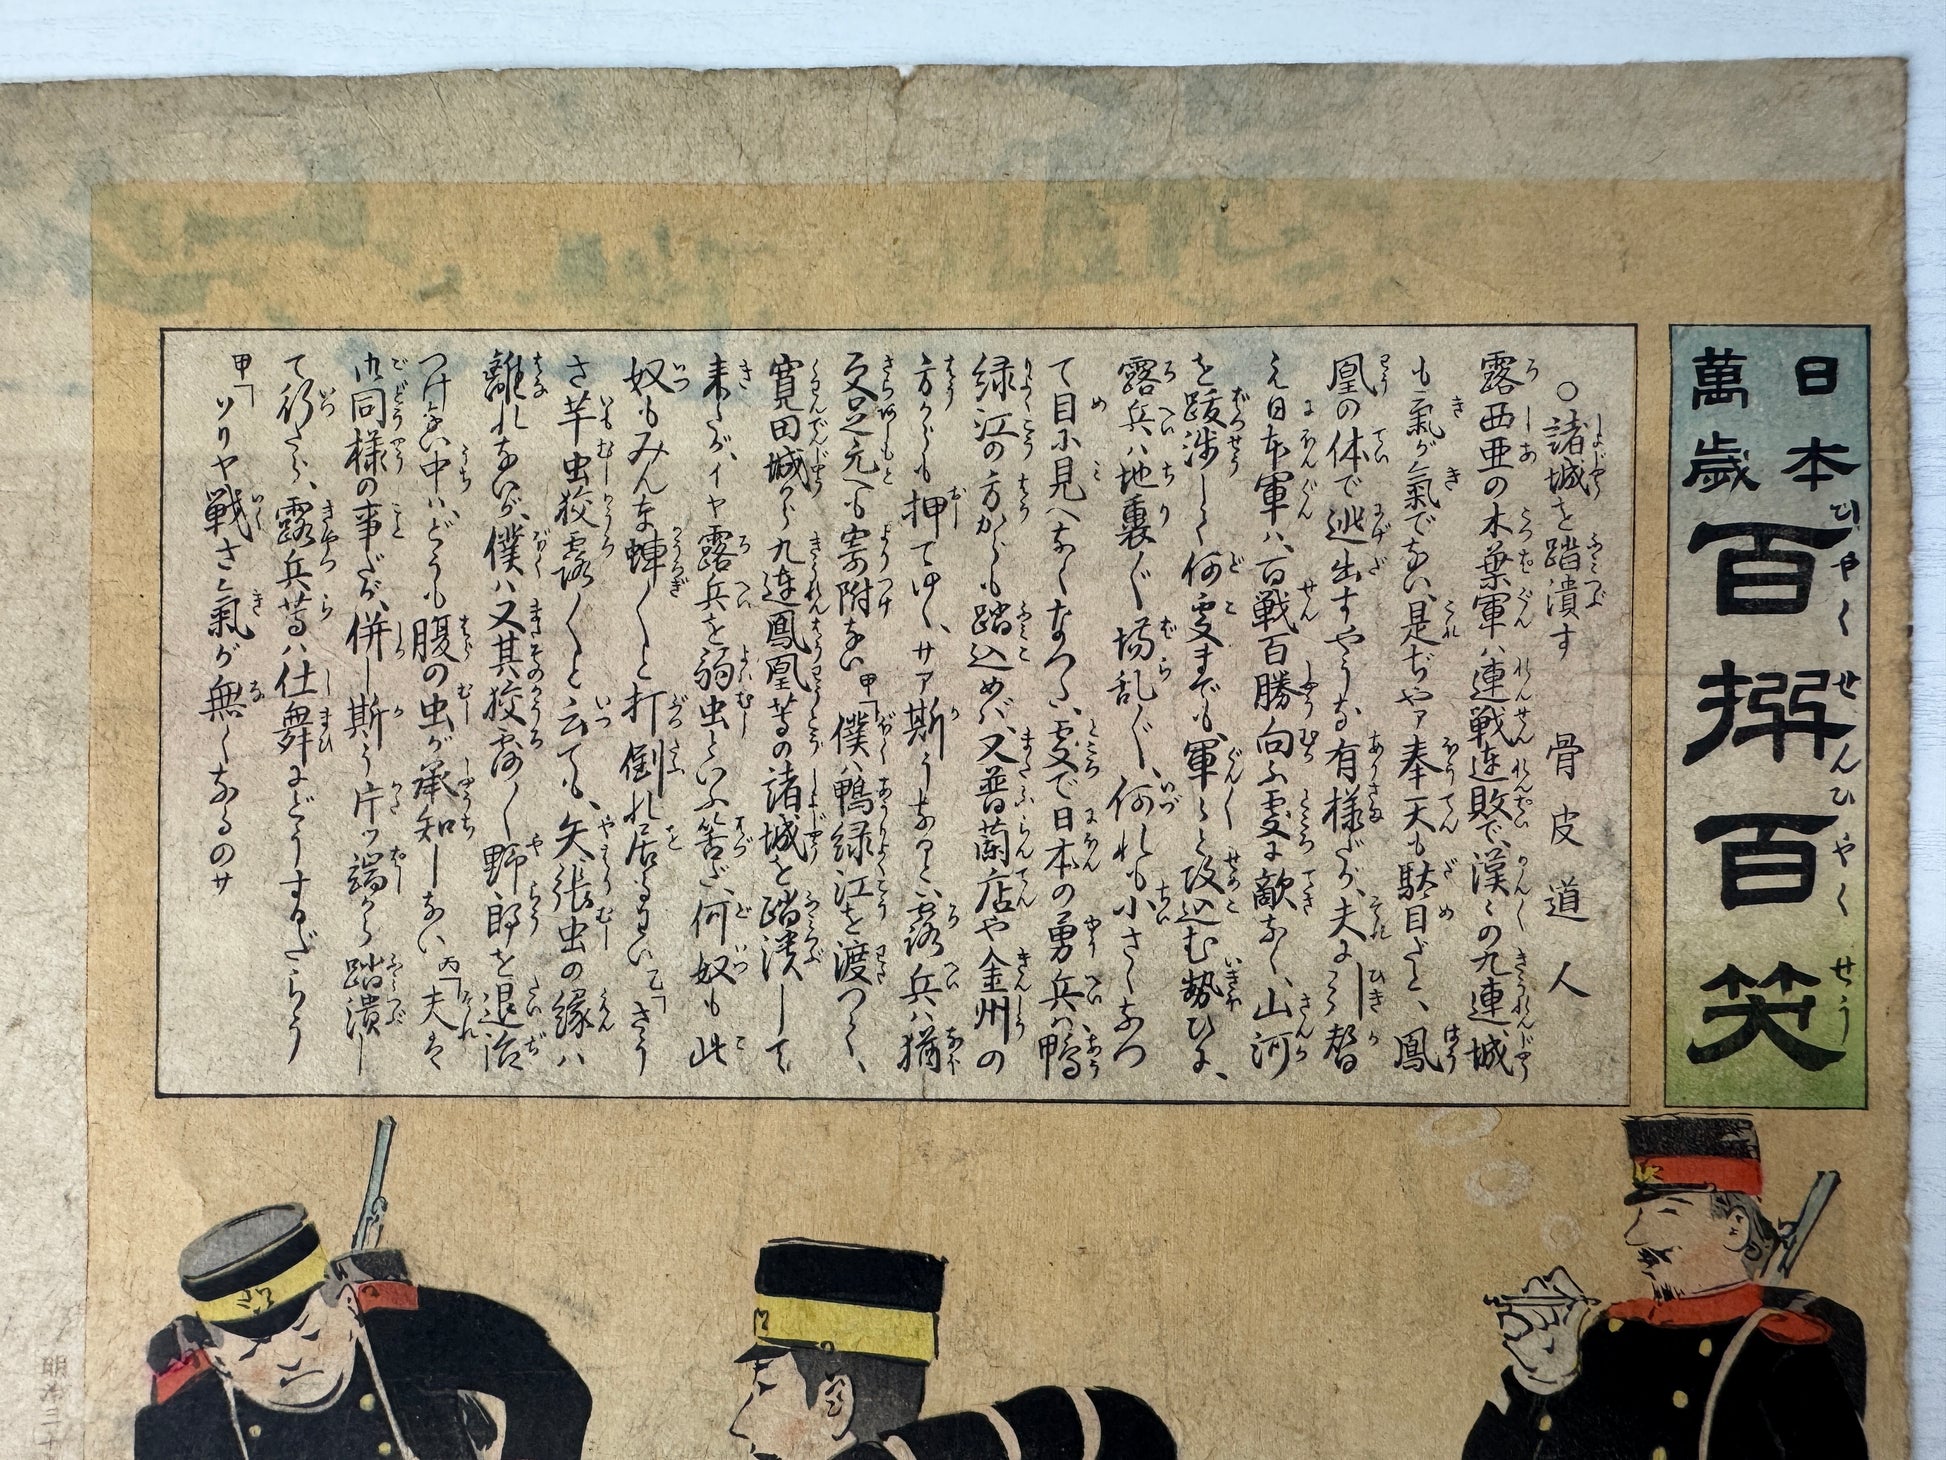 日本
萬歳
百撰百笑
ひやくせんひやくせう
○諸城を踏潰す　骨皮道人
露西亜の木葉軍ハ連戦連敗で、漢々の九連城
も氣が氣でない、是ぢやァ奉天も駄目だと、鳳
凰の体で逃出すやうな有様だが、夫に引替
え日本軍ハ、百戦百勝向ふ處に敵なく、山河
を跋渉して何處までも、軍々と攻込む勢ひに、
露兵ハ地裏ぐ場乱ぐ、何れも小さくなつ
て目に見へなくなつた、處で日本の勇兵ハ、鴨
緑江の方からも踏込めバ、又普蘭店や金州の
方からも押てゆく、サア斯うなると、露兵ハ猶
更足元へも寄附ない 甲「僕ハ鴨緑江を渡つて、
寛田城から九連鳳凰等の諸城を踏潰して
来たが、イヤ露兵を弱虫といふ筈だ、何奴も此
奴もみんな蝉々と打倒れ居るわい 乙「さう
さ芋虫狡露々々と云ても、矢張虫の縁ハ
離れないが、僕ハ又其狡露々々野郎を退治
つけない中ハ、どうも腹の虫が承知しない 丙「夫ハ
御同様の事だが、併し斯う片ッ端から踏潰し
て行たら、露兵等ハ仕舞にどうするだらう
甲「ソリヤ戦さ氣が無くなるのサ
明治三十